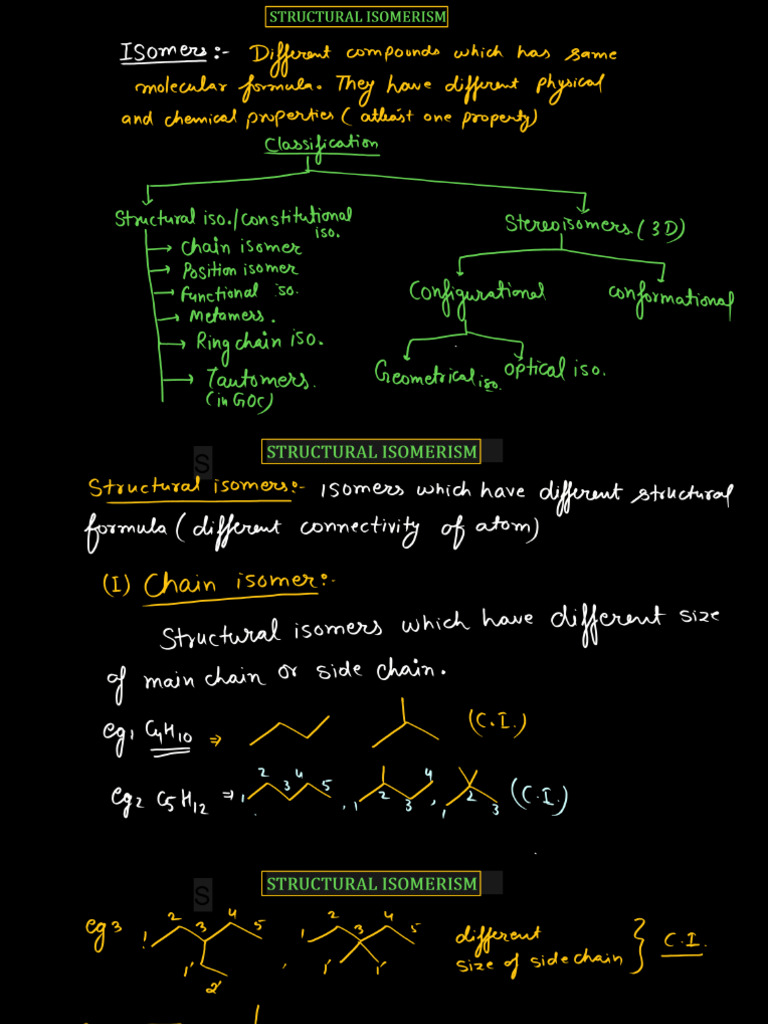 STRUCTURAL ISOMERISM
Isomers:- Different compounds which has same
molecular formula. They have different physical
and chemical properties (atleast one property)
Classification
Structural iso./constitutional
iso.
→ Chain isomer
→ Position isomer
→ Functional iso.
→ Metamers.
→ Ring chain iso.
→ Tautomers.
(in GOC)
Stereoisomers (3D)
Configurational
conformational
Geometrical iso.
optical iso.
S
STRUCTURAL ISOMERISM
Structural isomers:- Isomers which have different structural
formula (different connectivity of atom)
(I) Chain isomer:-
Structural isomers which have different size
of main chain or side chain.
eg1 C4H10 ⇒ (C.I.)
eg2 C5H12 ⇒ 1 2 3 4 5 , 1 2 3 4 , 1 2 3 (C.I.)
S
STRUCTURAL ISOMERISM
eg 3 1 2 3 4 5 1' 2' , 1 2 3 4 5 1' 1' different
size of side chain } C.I.